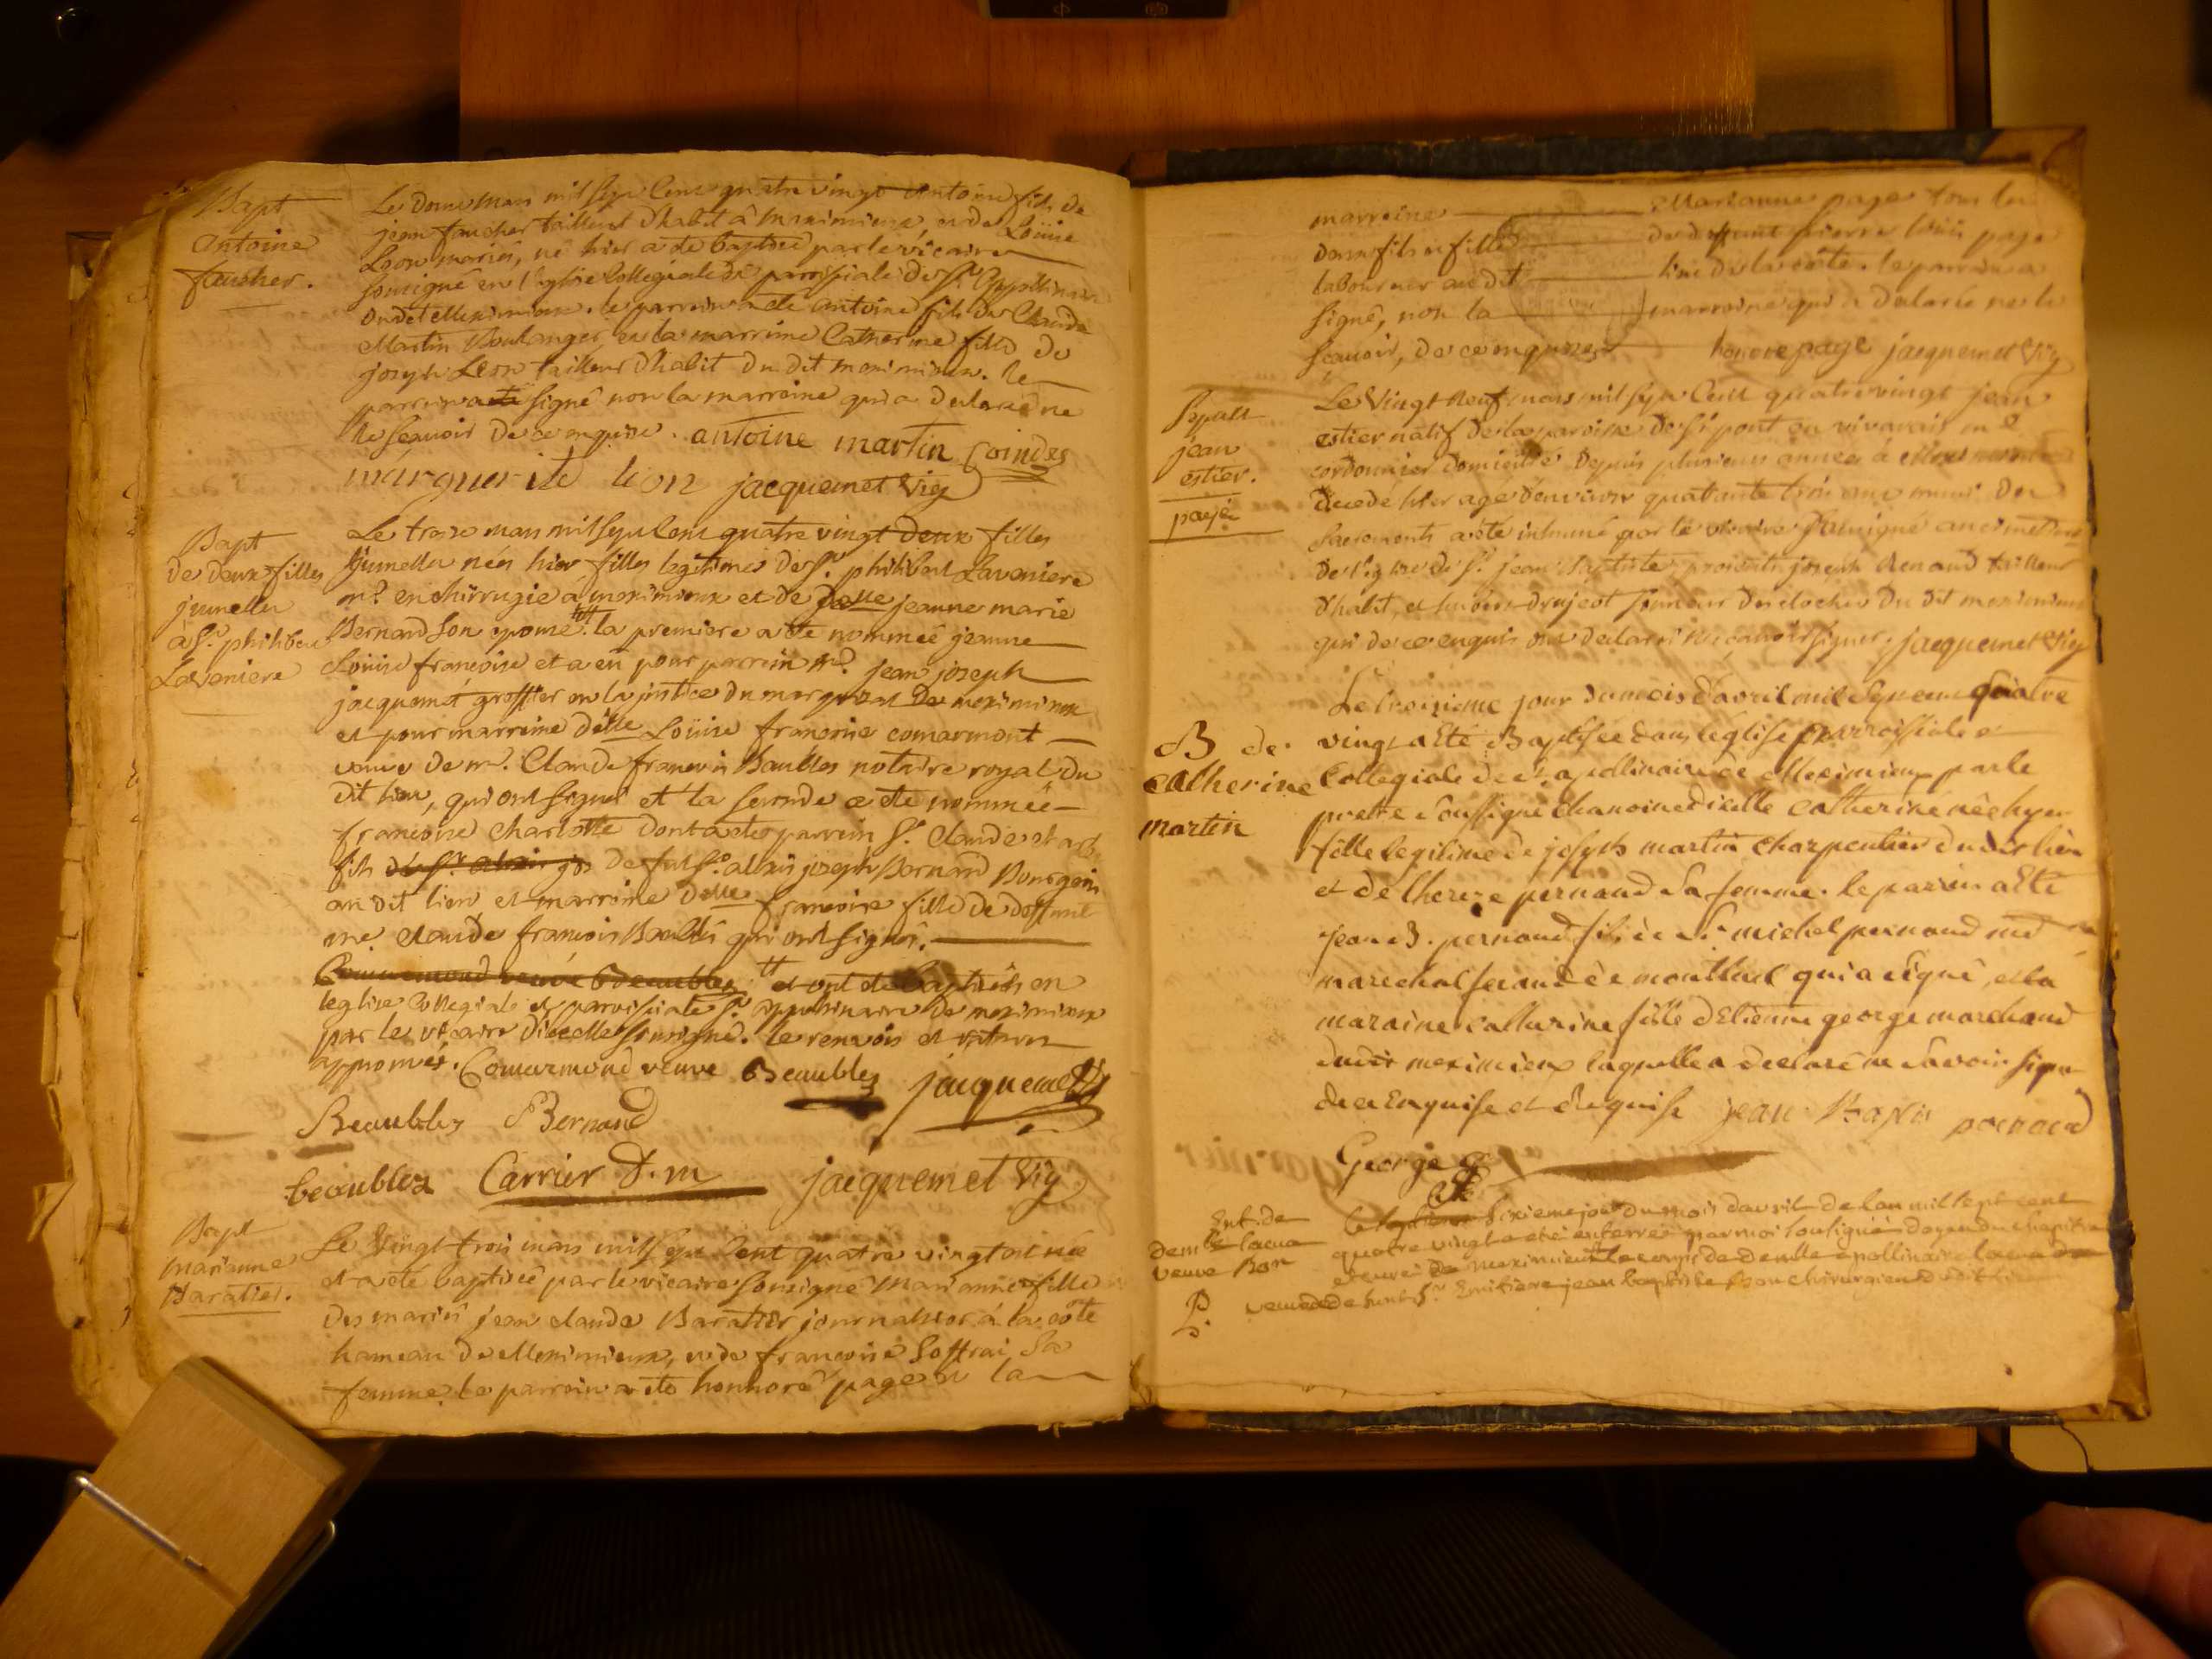 Bapt
Antoine
faucher.
Le douze Mars mil sept Cent quatre vingt Antoine fils de
jean faucher tailleur d'habit à Meximieux, et de Loüise
Leon mariés, né hier a été baptisé par le vicaire
sousigné en l'eglise collegiale et parroissiale de St Appollinaire
dudit Meximieux. le parrein a été antoine fils de Claude
Martin Boulanger, et la marreine Catherine fille de
joseph Leon tailleur d'habit du dit meximieux. le
parrein a signé non la marreine qui a declaré ne
le sçauoir de ce enquise. antoine martin Coindes
marguerite leon jacquemet Vic
Bapt
de deux filles
jumelles
à Sr. philibert
Laveniere
Le treize mars mil sept Cent quatre vingt deux filles
jumelles nées hier filles legitimes de Sr. philibert Laveniere
me. en chirrugie à meximieux et de delle jeanne marie
Bernard son epouse. la premiere a été nommée jeanne
Loüise françoise et a eu pour parrein mr. jean joseph
jacquemet greffier en la justice du marquisat de meximieux
et pour marreine delle Loüise françoise comarmont
veuve de mr. Claude françois Baublés notaire royal du
dit lieu, qui ont signés et la seconde a été nommée
françoise charlotte dont a été parrein Sr. Claude charles
fils de feu Sr. alexis joseph Bernard Bourgeois
au dit lieu et marreine delle françoise fille de deffunt
me. claude françois Baublés qui ont signés.
Comarmond veuve Beaubles et ont été baptisées en
l'eglise Collegiale et parroissiale St. appollinaire de meximieux
par le vicaire d'icelle sousigné. le renvois et ratures
approuvés. Comarmond veuve Beaubles jacquemet
Beaubles Bernard
beaubles Carrier D. m jacquemet Vic
Bapt
marianne
Baratier.
Le Vingt trois mars mil sept Cent quatre vingt est née
et a été baptisée par le vicaire sousigné Marianne fille
des mariés jean claude Baratier journalier à la côte
hameau de Meximieux, et de françoise Soffrai Sa
femme. le parrein a été honnoré page et la
marreine Marianne page tous les
deux fils et fille de deffunt pierre loüis page
laboureur audit lieu de la côte. le parrein a
signé, non la marreine qui a declaré ne le
sçauoir, de ce enquise honore page jacquemet Vic
Sepult
jean
estier.
payé
Le Vingt neuf mars mil sept Cent quatre vingt jean
estier natif de la paroisse de St. pont en vivarais me
cordonnier domicilié depuis plusieurs années à Meximieux
decedé hier agé d'environ quarante trois ans muni des
Sacrements a été inhumé par le vicaire sousigné au cimetiere
de l'eglise de St. jean Baptiste, presents joseph Renaud tailleur
d'habit, et drujeot sonneur du clocher du dit meximieux
qui de ce enquis ont declaré ne sçauoir signer. jacquemet Vic
B de
catherine
martin
Le troisieme jour du mois d'avril mil sept cent quatre
vingt a Eté Baptisée dans leglise parroissiale et
Collegiale de St. apollinaire de Meximieux par le
pretre Soussigné chanoine d'icelle catherine née hyer
fille legitime de joseph martin charpentier dudit lieu
et de therese pernaud Sa femme. le parrein a Eté
jean B. pernaud fils de Sr michel pernaud md
marechal ferand de montluel qui a signé, et la
maraine catherine fille d'Etienne george marchand
dudit meximieux laquelle a declaré ne Savoir signer
de ce Enquise et Requise jean Baptis pernaud
George
Ent. de
demlle lacua
veuve Bon
P.
le Sixieme jour du mois d'avril de l'an mil sept cent
quatre vingt a été enterrée par moi Sousigné doyen du chapitre
et curé de meximieux le corps de demlle apollinaire lacua
veuve de defunt Sr jean baptiste Bon chirurgien dudit